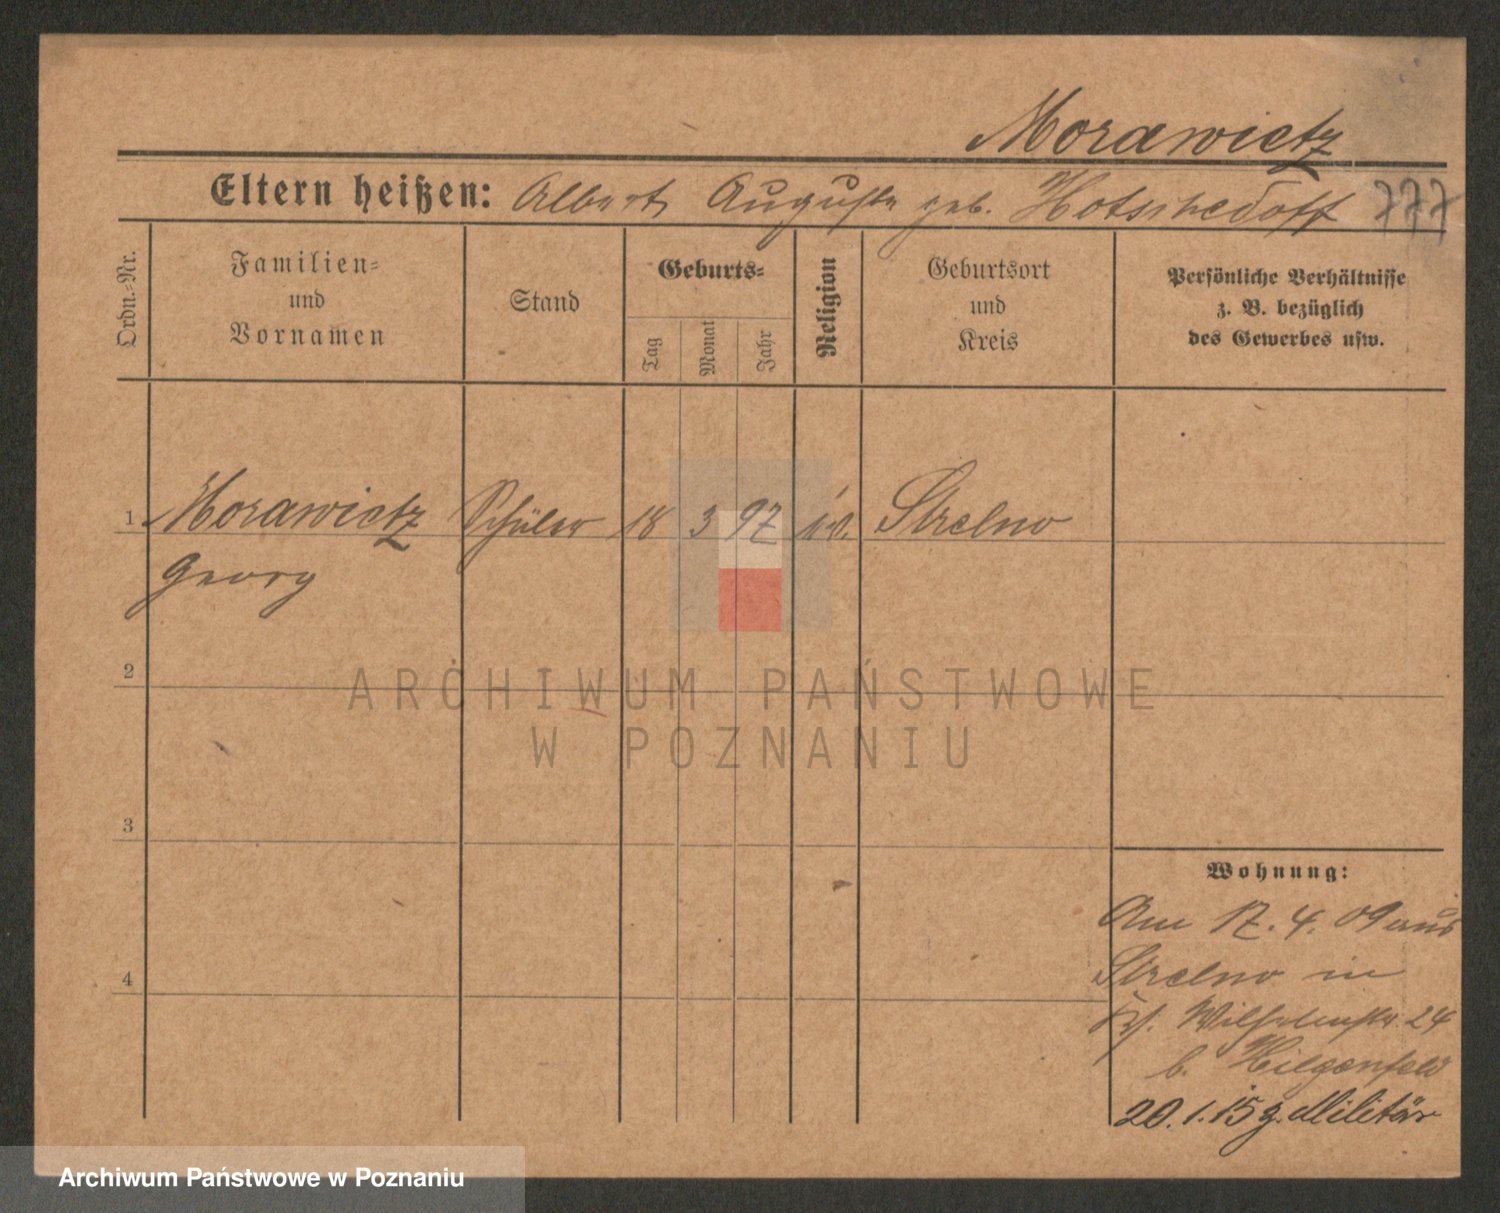 Morawietz
Eltern heißen: Albert Auguste geb. Hotschedoff 777
Ordn.-Nr.
Familien-
und
Vornamen
Stand
Geburts-
Tag
Monat
Jahr
Religion
Geburtsort
und
Kreis
Persönliche Verhältnisse
z. B. bezüglich
des Gewerbes usw.
1 Morawietz Schüler 18 3 97 ev. Strelno
Georg
2
ARCHIWUM PAŃSTWOWE
W POZNANIU
3
Wohnung:
Am 17. 4. 09 aus
Strelno in
Wilhelmstr. 24
b. Hilgenfeld
4
20. 1. 15 z. Militär
Archiwum Państwowe w Poznaniu